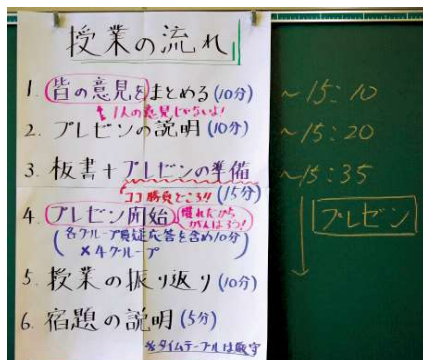 授業の流れ
1. 皆の意見をまとめる(10分)
↑1人の意見じゃないよ!
2. プレゼンの説明(10分)
3. 板書+プレゼンの準備
ココ勝負どころ!!(15分)
4. プレゼン開始 慣れたからがんばろう!
(各グループ質疑応答を含め10分)
×4グループ
5. 授業の振り返り(10分)
6. 宿題の説明(5分)
※タイムテーブルは厳守
~15:10
~15:20
~15:35
プレゼン